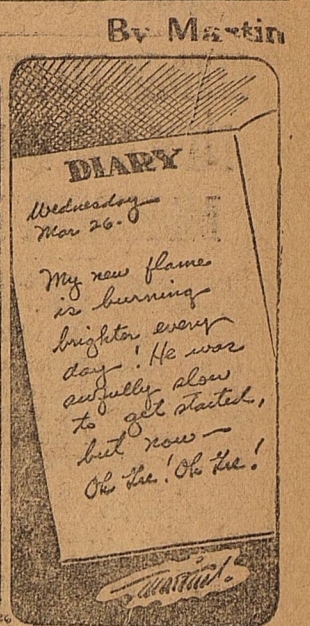 By Martin
DIARY
Wednesday
Mar 26.
My new flame
is burning
brighter every
day! He was
awfully slow
to get started,
but now—
Oh Gee! Oh Gee!
Martin